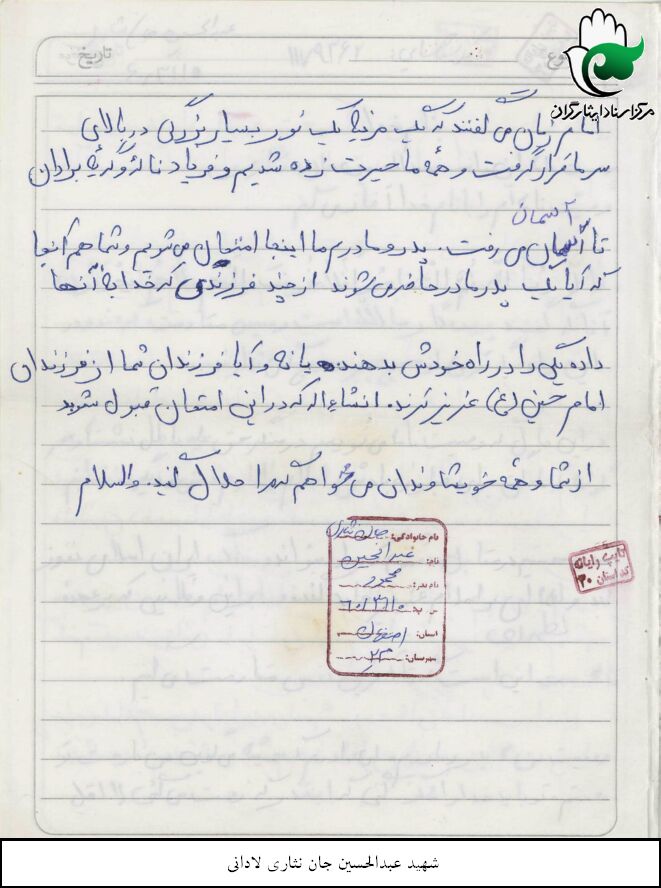 مرکز اسناد ایثارگران
تاریخ
امام زمان می گفتند که یک مرتبه یک نور بسیار بزرگی در بالای
سر ما قرار گرفت و همه ما حیرت زده شدیم و فریاد ناله و گریه برادران
آسمان
تا آسمان می رفت. پدر و مادرم ما اینجا امتحان می شویم و شما هم آنجا
که آیا یک پدر مادر حاضر می شوند از چند فرزندی که خدا به آنها
داده یکی را در راه خودش بدهند یا نه و آیا فرزندان شما از فرزندان
امام حسین (ع) عزیزترند. انشاءاله که در این امتحان قبول شوید
از شما و همه خویشاوندان می خواهم که مرا حلال کنید. والسلام
نام خانوادگی: جان نثاری
نام: عبدالحسین
نام پدر: محمود
استان: اصفهان
شهرستان: ۲۳
تایپ رایانه
کد استان ۳۰
شهید عبدالحسین جان نثاری لادانی